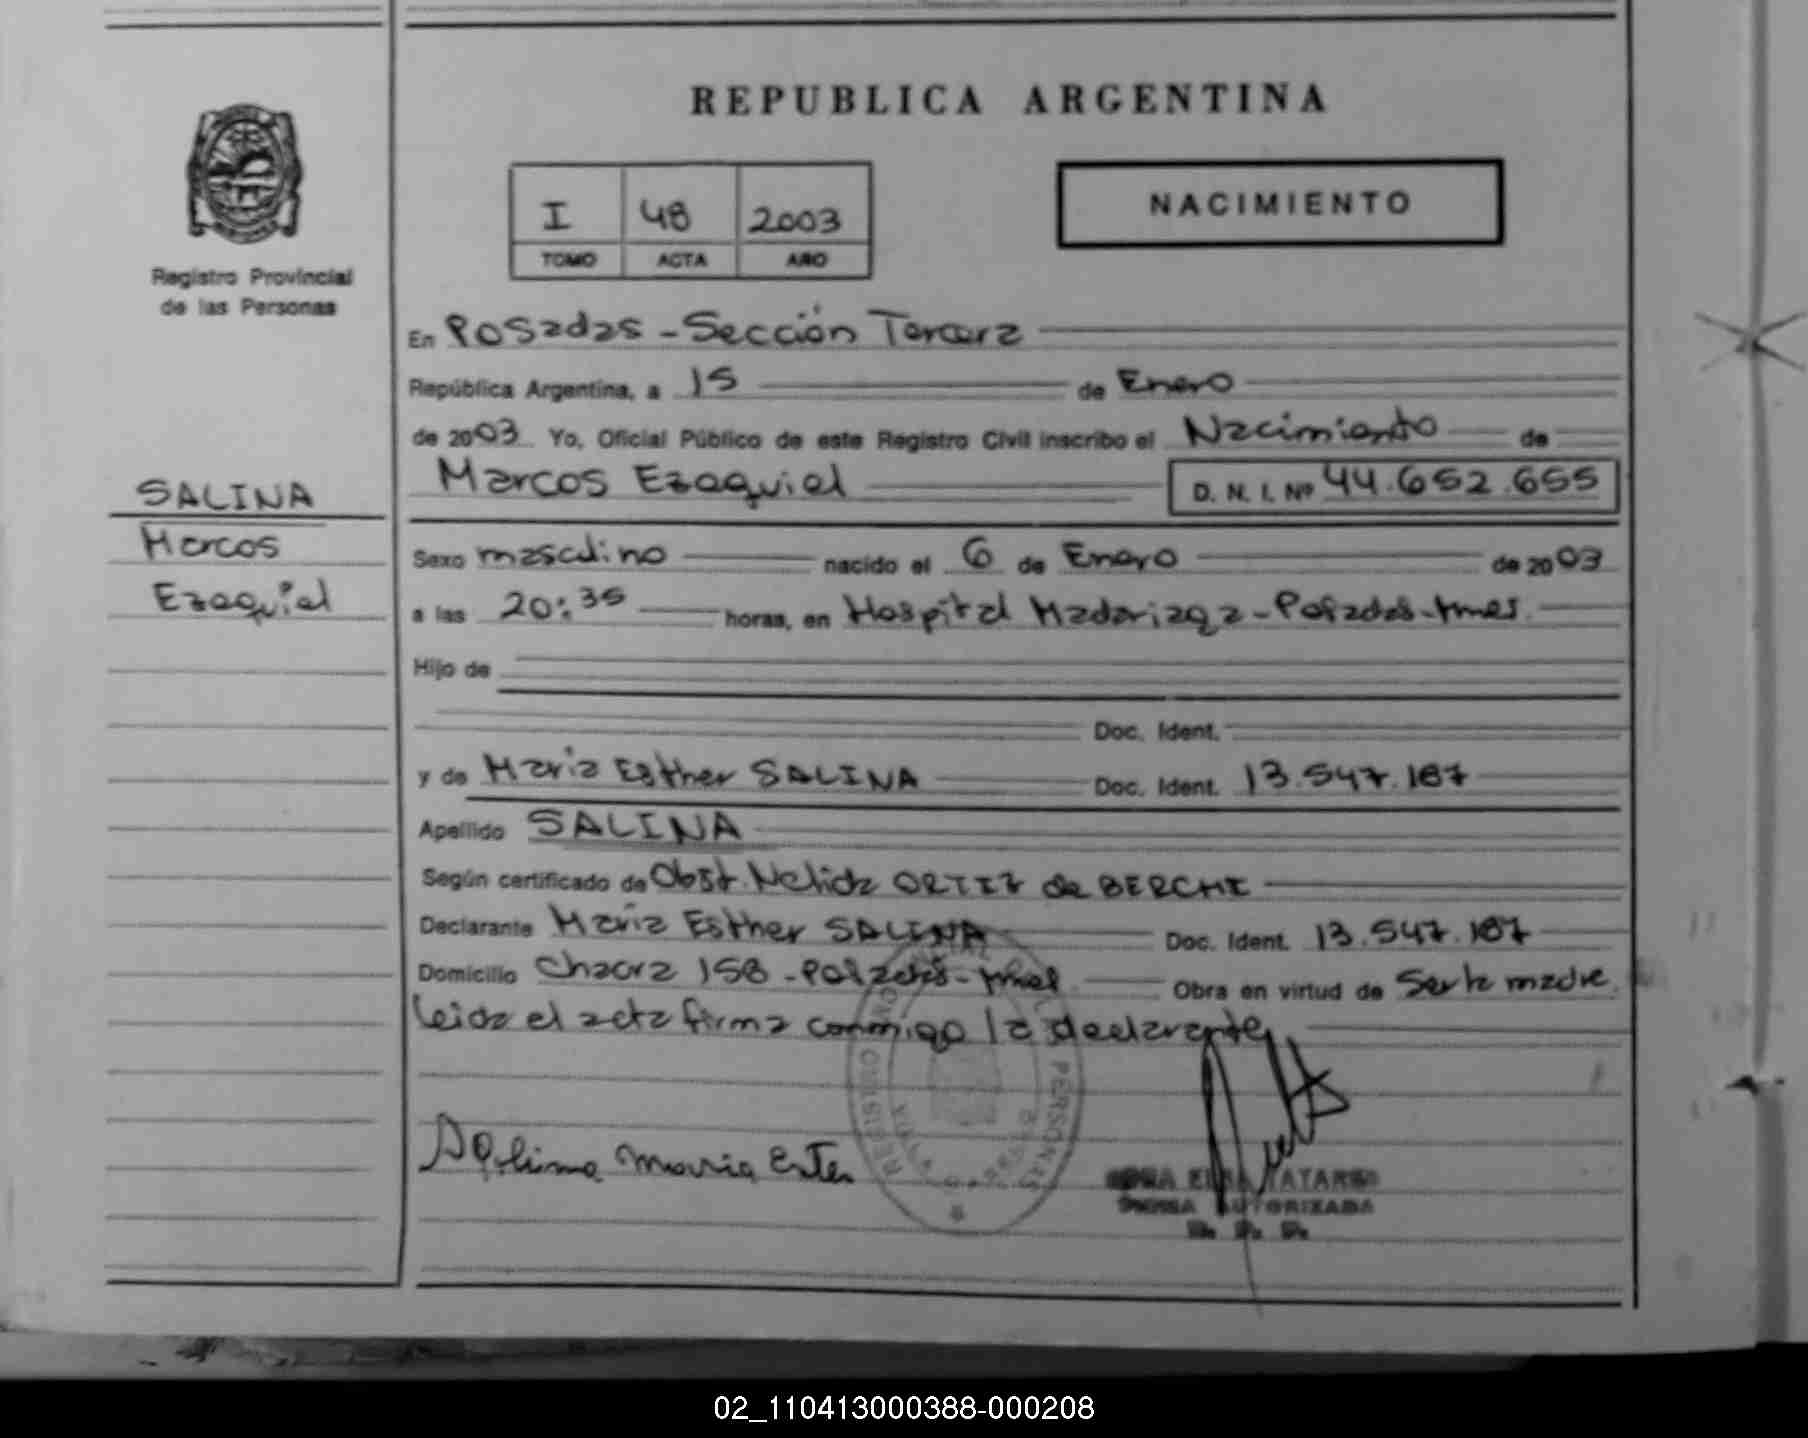 REPUBLICA ARGENTINA
I 48 2003
TOMO ACTA AÑO
NACIMIENTO
Registro Provincial
de las Personas
En Posadas - Sección Tercera
República Argentina, a 15 de Enero
de 2003 Yo, Oficial Público de este Registro Civil inscribo el Nacimiento de
Marcos Ezequiel D. N. I. Nº 44.652.655
SALINA
Marcos
Ezequiel
Sexo masculino nacido el 6 de Enero de 2003
a las 20:35 horas, en Hospital Madariaga - Posadas - Mnes.
Hijo de
Doc. Ident.
y de Maria Esther SALINA Doc. Ident. 13.547.187
Apellido SALINA
Según certificado de Obst. Nelida ORTIZ de BERCHI
Declarante Maria Esther SALINA Doc. Ident. 13.547.187
Domicilio Chacra 158 - Posadas - Mnes Obra en virtud de Ser la madre
leida el acta firma conmigo la declarante
PERSONAS
Maria Ester
AUTORIZADA
R. P. P.
02_110413000388-000208